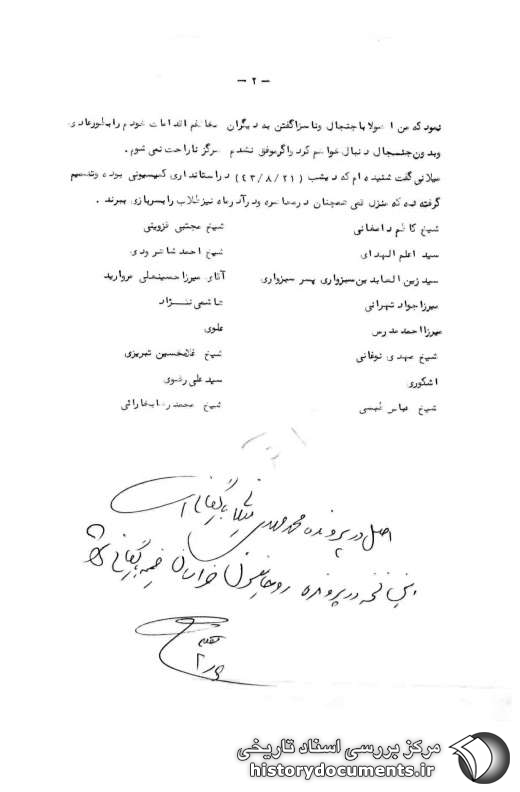 - ۲ -
نمود که من اصولا با جنجال و ناسزا گفتن به دیگران مخالفم اقدامات خودم را بطور عادی
و بدون جنجال دنبال خواهم کرد و اگر موفق نشدم هرگز ناراحت نمی شوم .
میلانی گفت شنیده ام که دیشب (۴۳/۸/۲۱) در استانداری کمیسیونی بوده و تصمیم
گرفته شده که منزل قمی همچنان در محاصره و در آذرماه نیز طلاب را بسربازی ببرند .
شیخ کاظم دامغانی شیخ مجتبی قزوینی
سید اعلم الهدای شیخ احمد شاهرودی
سید زین العابدین سبزواری پسر سبزواری آقای میرزا حسینعلی مروارید
میرزا جواد تهرانی هاشمی نژاد
میرزا احمد مدرس علوی
شیخ مهدی نوقانی شیخ غلامحسین تبریزی
اشکوری سید علی رضوی
شیخ عباس شیخ محمد رضا
اصل در پرونده محمد هادی میلانی بایگانی است
این نسخه در پرونده روحانیون خراسان ضمیمه بایگانی شود
مرکز بررسی اسناد تاریخی
historydocuments.ir